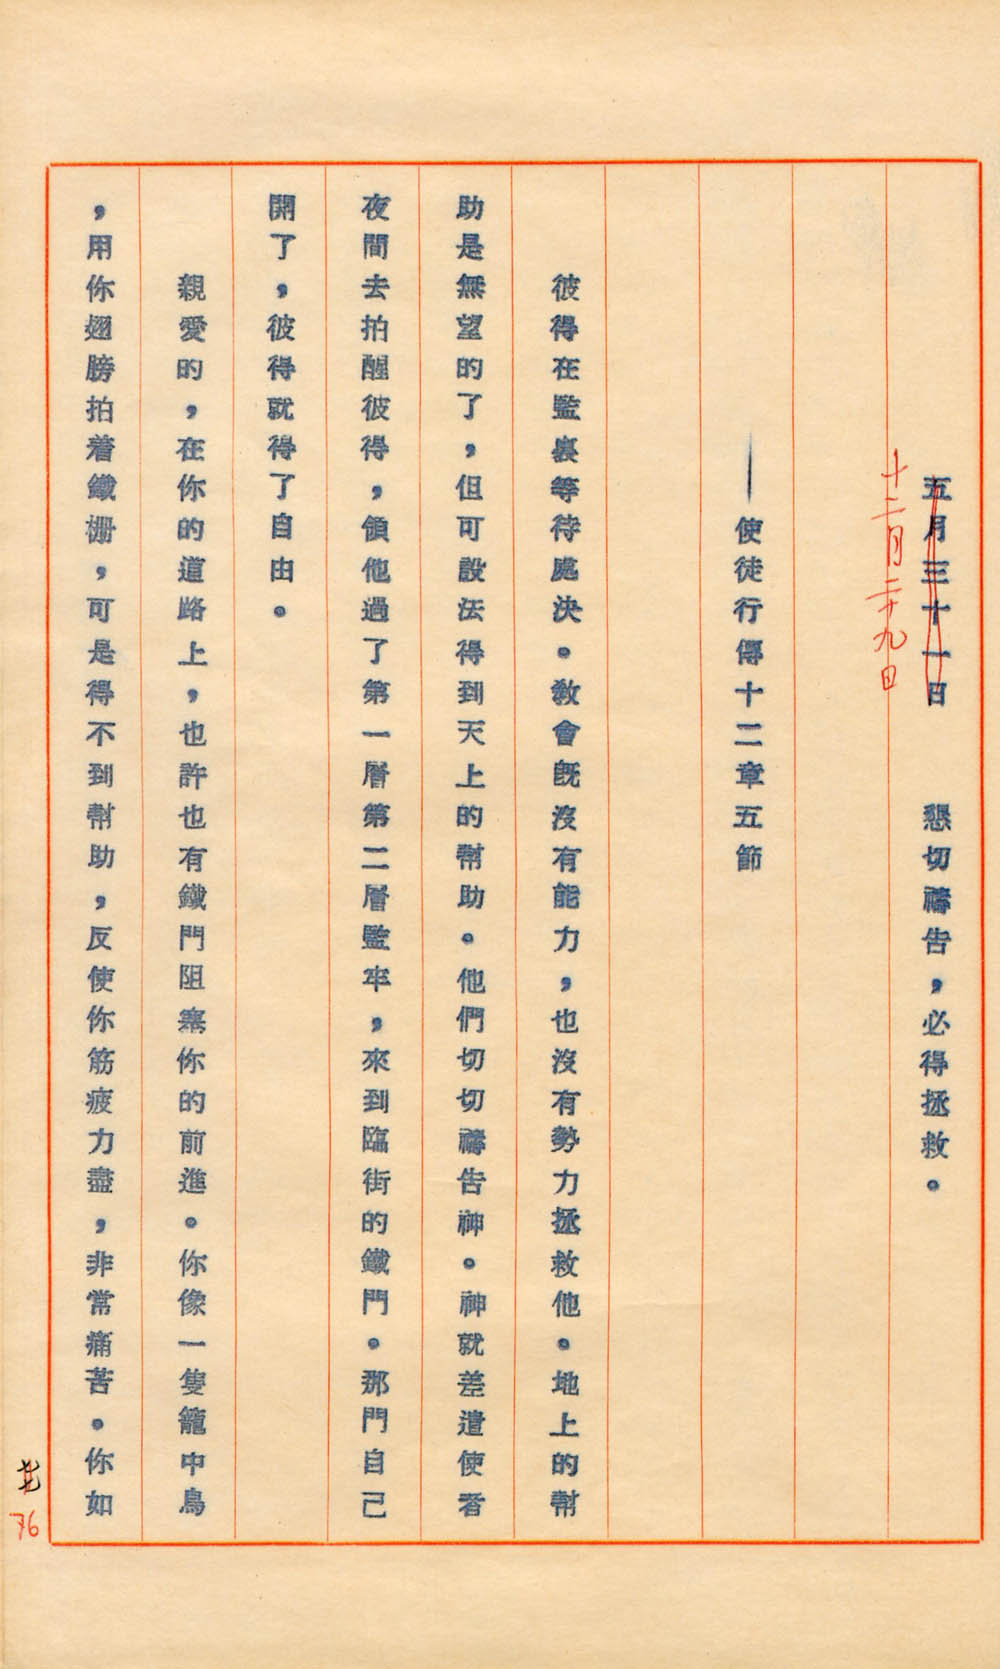 五月三十一日　　懇切禱告，必得拯救。
十二月二十九日
——使徒行傳十二章五節
彼得在監裏等待處決。教會旣沒有能力，也沒有勢力拯救他。地上的幫
助是無望的了，但可設法得到天上的幫助。他們切切禱告神。神就差遣使者
夜間去拍醒彼得，領他過了第一層第二層監牢，來到臨街的鐵門。那門自己
開了，彼得就得了自由。
親愛的，在你的道路上，也許也有鐵門阻塞你的前進。你像一隻籠中鳥
，用你翅膀拍着鐵柵，可是得不到幫助，反使你筋疲力盡，非常痛苦。你如
76